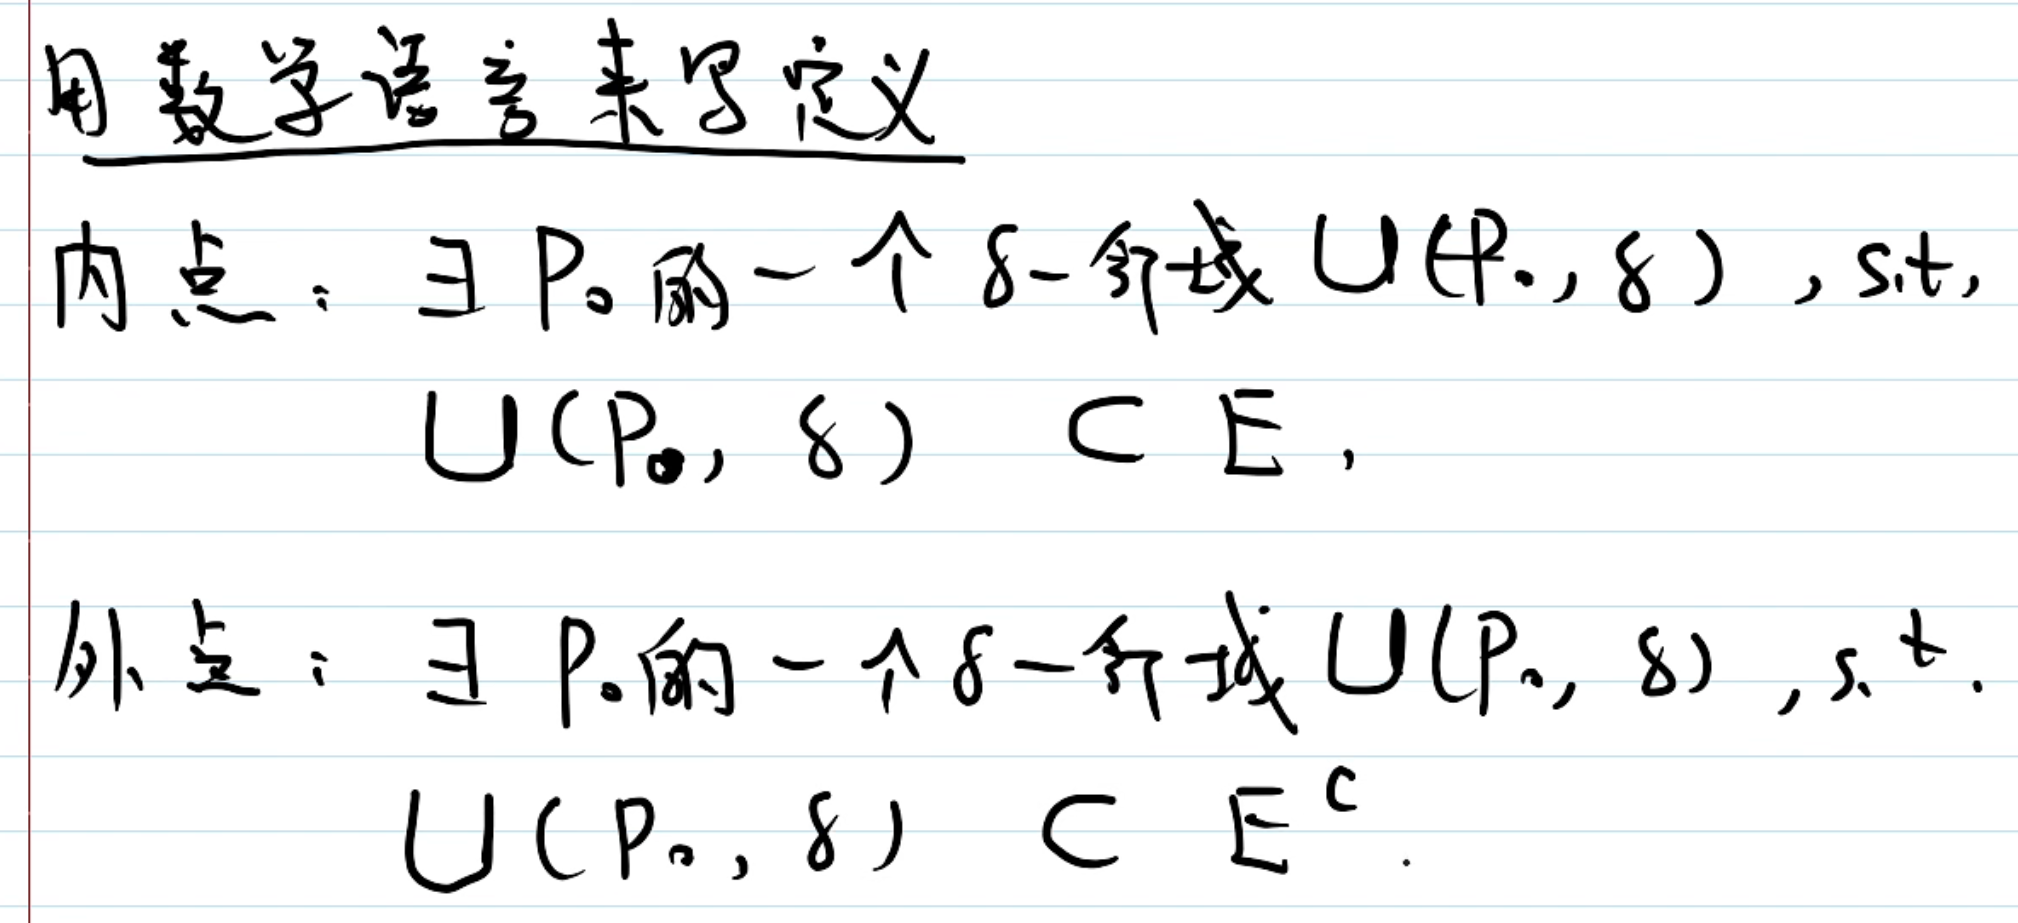 用数学语言来写定义
内点：∃ P₀的一个 δ-邻域 U(P₀, δ), s.t.
U(P₀, δ) ⊂ E,
外点：∃ P₀的一个δ-邻域 U(P₀, δ), s.t.
U(P₀, δ) ⊂ Eᶜ.